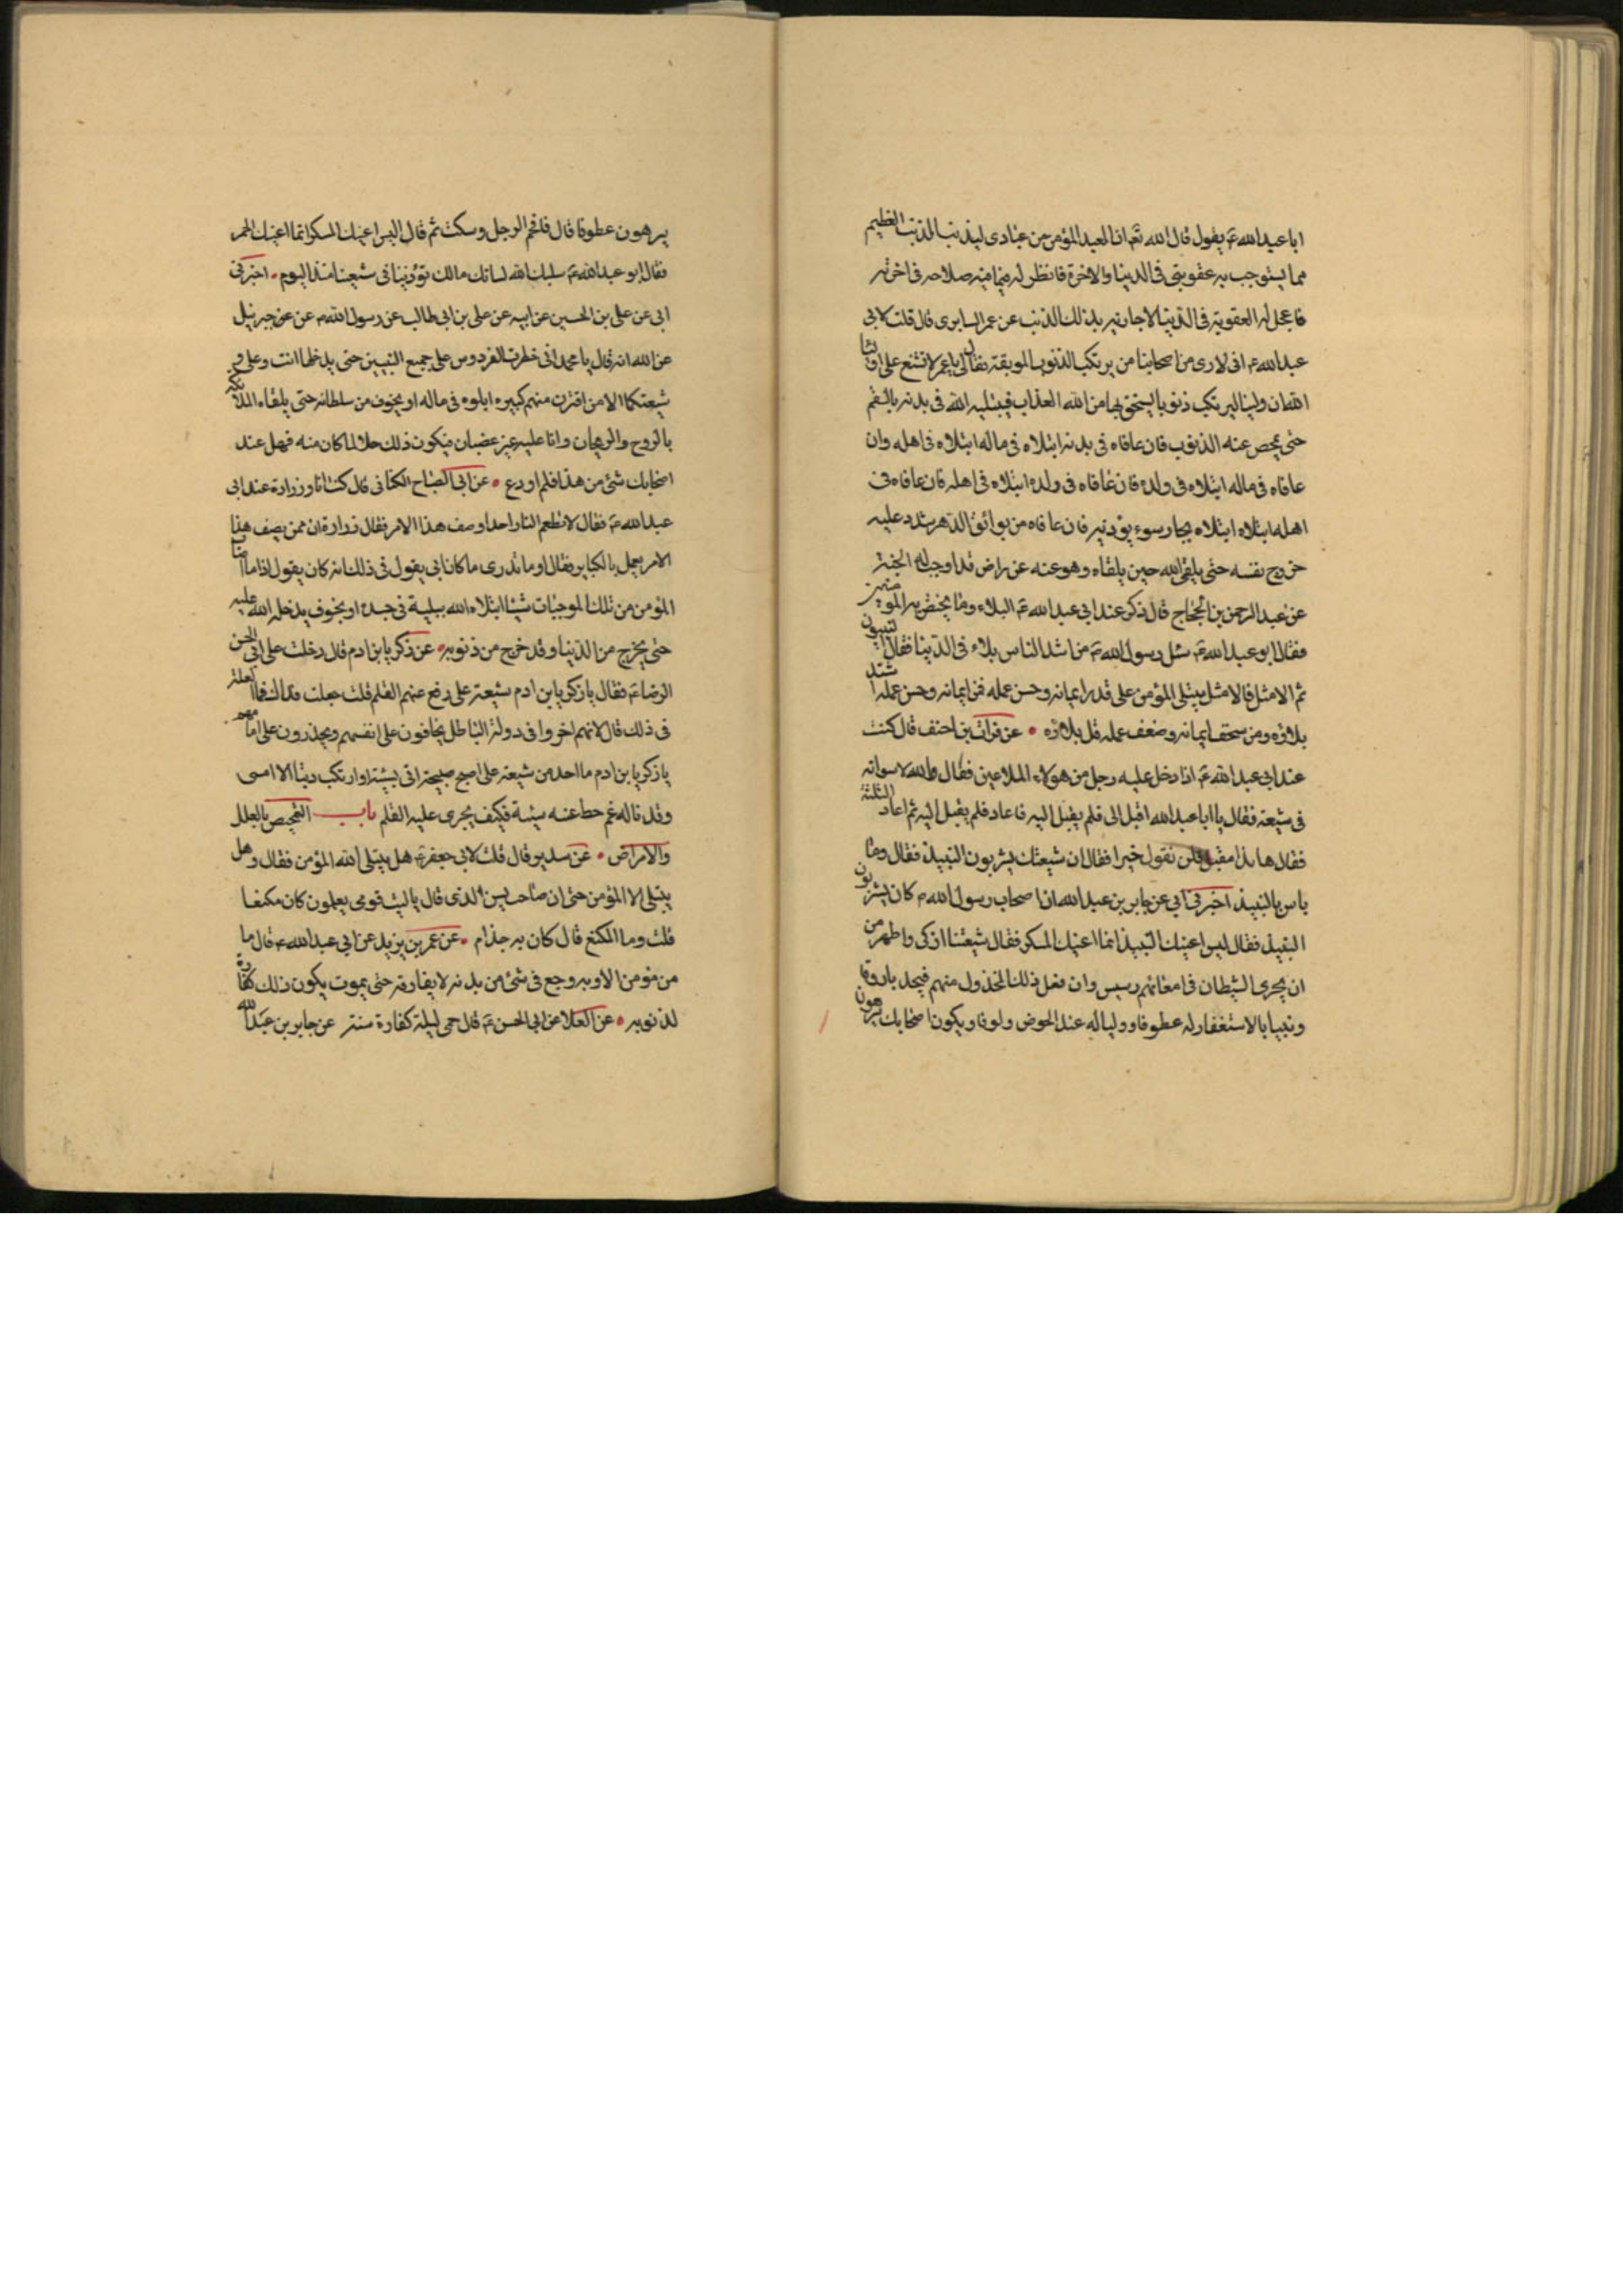 ابا عبد الله ع يقول قال الله تع ان العبد المؤمن من عبادى ليذنب الذنب العظيم
مما يستوجب به عقوبتى فى الدنيا والاخرة فانظر له فيما فيه صلاحه فى اخرته
فاعجل له العقوبة فى الدنيا لاجازيه بذلك الذنب عن عمر السابرى قال قلت لابى
عبد الله ع انى لارى من اصحابنا من يرتكب الذنوب الموبقة فقال لى يا عمر لا تشنع على اوليا
الله ان ولينا ليرتكب ذنوبا يستحق بها من الله العذاب فيبتليه الله فى بدنه بالسقم
حتى يمحص عنه الذنوب فان عافاه فى بدنه ابتلاه فى ماله ابتلاه فى اهله وان
عافاه فى ماله ابتلاه فى ولده فان عافاه فى ولده ابتلاه فى اهله فان عافاه فى
اهله ابتلاه ابتلاه بجار سوء يؤذيه فان عافاه من بوائق الدهر شدد عليه
خروج نفسه حتى يلقى الله حين يلقاه وهو عنه راض قد اوجب له الجنة
عن عبد الرحمن بن الحجاج قال ذكر عند ابى عبد الله ع البلاء وما يختص به المؤمنين
فقال ابو عبد الله ع سئل رسول الله ص من اشد الناس بلاء فى الدنيا فقال النبيون
ثم الامثل فالامثل يبتلى المؤمن على قدر ايمانه وحسن عمله فمن ايمانه وحسن عمله اشتد
بلاؤه ومن سخف ايمانه وضعف عمله قل بلاؤه عن فرات بن احنف قال كنت
عند ابى عبد الله ع اذا دخل عليه رجل من هولاء الملاعين فقال والله لاسوانه
فى شيعته فقال يا ابا عبد الله اقبل الى فلم يقبل اليه فاعاد فلم يقبل اليه ثم اعاد الثلثة
فقال ها انا مقبل فلن تقول خيرا فقال ان شيعتك يشربون النبيذ فقال وما
باس بالنبيذ اخبرنى ابى عن جابر بن عبد الله ان اصحاب رسول الله ص كان يشربون
النبيذ فقال ليس اعنيك النبيذ انما اعنيك المسكر فقال شيعتنا ازكى واطهر من
ان يجرى الشيطان فى امعائهم رسيس وان فعل ذلك المخذول منهم فيجد ربا روفا
ونبيا بالاستغفار له عطوفا ووليا له عند الحوض ولوفا ويكون اصحابك ببرهون
برهون عطوفا قال فافحم الرجل وسكت ثم قال ليس اعنيك المسكر انما اعنيك الخمر
فقال ابو عبد الله ع سلبك الله لسانك مالك تؤذينا فى شيعتنا منذ اليوم اخبرنى
ابى عن على بن الحسين عن ابيه عن على بن ابى طالب عن رسول الله ص عن عن جبرئيل
عن الله انه قال يا محمد انى حظرت الفردوس على جميع النبيين حتى يدخلها انت وعلى و
شيعتكما الا من اقترف منهم كبيره ابلوه فى ماله او بخوف من سلطانه حتى يلقاه الملائكة
بالروح والريحان وانا عليه غير غضبان فيكون ذلك حلا لما كان منه فهل عند
اصحابك شئ من هذا فلم او دع عن ابى الصباح الكنانى قال كنت انا وزرارة عند ابى
عبد الله ع فقال لا تطعم النار احدا وصف هذا الامر فقال زرارة ان ممن يصف هذا
الامر يعمل بالكباير فقال او ما تدرى ما كان ابى يقول فى ذلك انه كان يقول اذا ما اصاب
المؤمن من تلك الموجبات شيئا ابتلاه الله ببلية فى جسده او بخوف يدخله الله عليه
حتى يخرج من الدنيا وقد خرج من ذنوبه عن زكريا بن ادم قال دخلت على ابى الحسن
الرضا ع فقال يا زكريا بن ادم شيعة على رفع عنهم القلم قلت جعلت فداك فما العلة
فى ذلك قال لانهم اخروا فى دولة الباطل يخافون على انفسهم ويحذرون على امامهم
يا زكريا بن ادم ما احد من شيعة على اصبح صبيحة اتى بسيئة او ارتكب ذنبا الا امسى
وقد ناله غم حط عنه سيئة فكيف يجرى عليه القلم باب التمحيص بالعلل
والامراض عن سدير قال قلت لابى جعفر ع هل يبتلى الله المؤمن فقال وهل
يبتلى الا المؤمن حتى ان صاحب يس الذى قال يا ليت قومى يعلمون كان مكنعا
قلت وما المكنع قال كان به جذام عن عمر بن يزيد عن ابى عبد الله ع قال ما
من مومن الا وبه وجع فى شئ من بدنه لا يفارقه حتى يموت يكون ذلك كفارة
لذنوبه عن العلا عن ابى الحسن ع قال حمى ليلة كفارة سنة عن جابر بن عبد الله